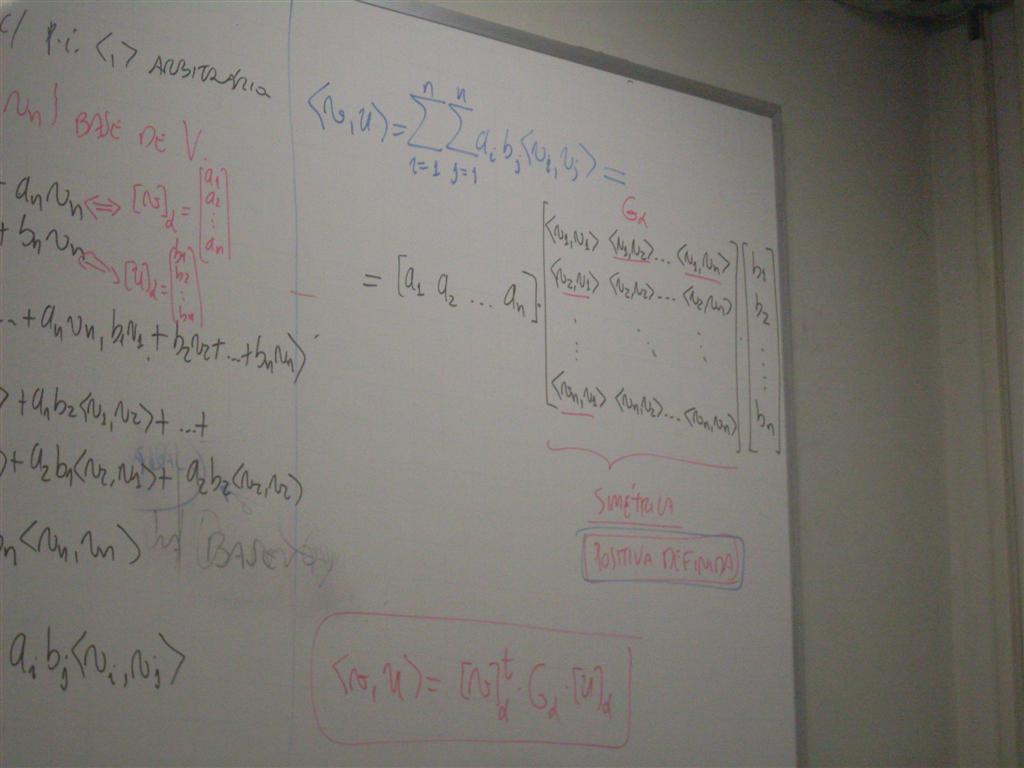 c/ p.i. <,> ARBITRÁRIO
vn} BASE DE V.
+ an vn ⇔ [v]α = [a1 a2 ⋮ an]
+ bn vn ⇔ [u]α = [b1 b2 ⋮ bn]
... + an vn, b1v1 + b2v2 + ... + bnvn>
> + a1b2<v1,v2> + ... +
) + a2b1<v2,v1> + a2b2<v2,v2>
bn <vn,vn>
BASE
ai bj <vi,vj>
<v,u> = n∑i=1 n∑j=1 ai bj <vi,vj> =
Gα
= [a1 a2 ... an] · [<v1,v1> <v1,v2> ... <v1,vn>
<v2,v1> <v2,v2> ... <v2,vn>
⋮ ⋱ ⋮
<vn,v1> <vn,v2> ... <vn,vn>] [b1 b2 ⋮ bn]
SIMÉTRICA
POSITIVA DEFINIDA
<v,u> = [v]α^t · Gα · [u]α